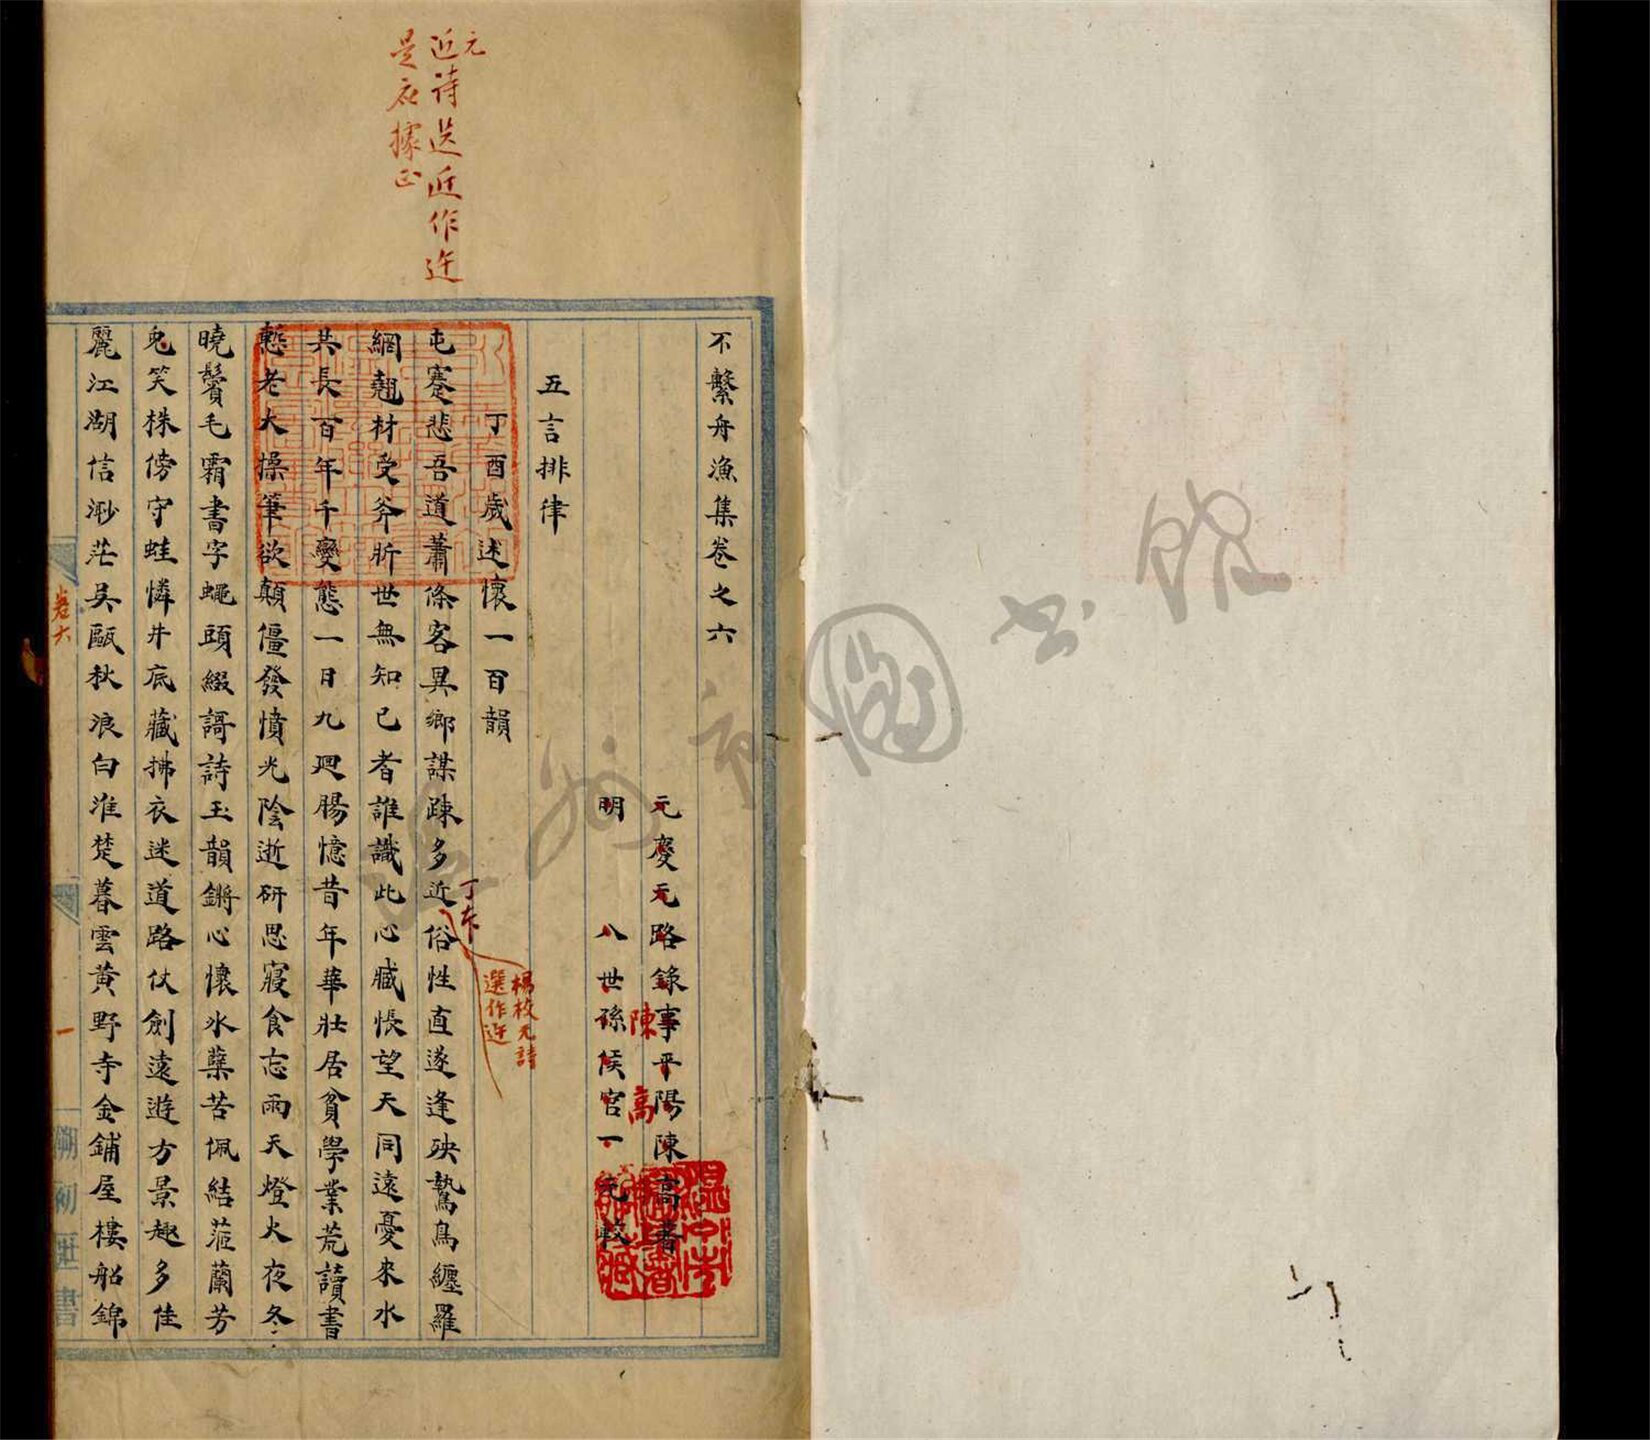 不繫舟漁集卷之六
元慶元路錄事平陽陳高著
陳高
明 八世孫候官一元較
五言排律
丁酉歲述懷一百韻
屯蹇悲吾道蕭條客異鄉謀疎多近俗性直遂逢殃驚鳥纏羅
網翹材受斧斨世無知己者誰識此心臧悵望天同遠憂來水
共長百年千變態一日九廻腸憶昔年華壯居貧學業荒讀書
慙老大操筆欲顛僵發憤光陰逝研思寢食忘雨天燈火夜冬
曉鬢毛霜書字蠅頭綴謌詩玉韻鏘心懷氷蘖苦佩結茝蘭芳
兎笑株傍守蛙憐井底藏拂衣迷道路仗劍遠遊方景趣多佳
麗江湖信渺茫吳甌秋浪白淮楚暮雲黄野寺金鋪屋樓船錦
元
近詩选近作迕
是应據正
楊校元詩
選作迕
卷六
一
溫州市圖書館
溫州市圖書館藏